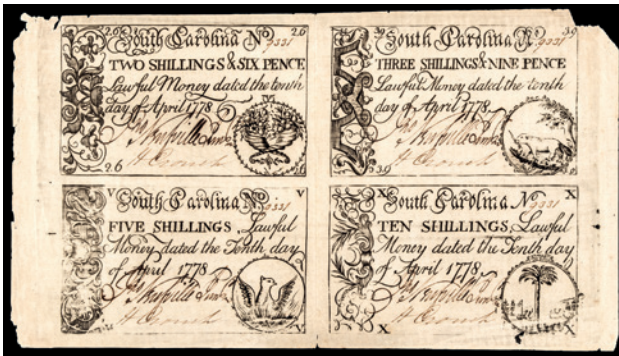 2.6 South Carolina No 9331 2.6
TWO SHILLINGS & SIX PENCE
Lawful Money dated the tenth
day of April 1778
2.6
39 South Carolina No. 9331 39
THREE SHILLINGS & NINE PENCE
Lawful Money dated the tenth
day of April 1778
39
V South Carolina No 9331 V
FIVE SHILLINGS, Lawful
Money dated the Tenth day
of April 1778
V
X South Carolina No. 9331 X
TEN SHILLINGS, Lawful
Money dated the Tenth day
of April 1778
X X